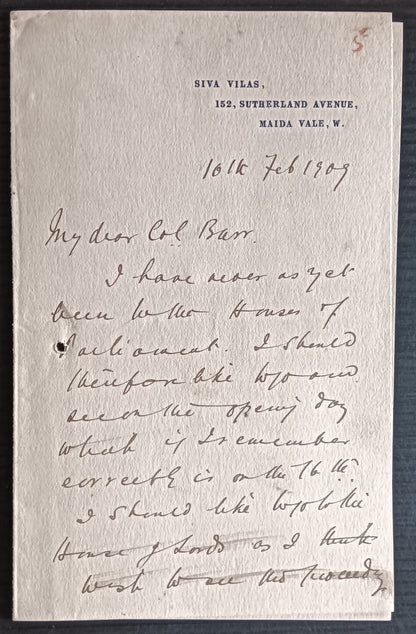 5
SIVA VILAS,
152, SUTHERLAND AVENUE,
MAIDA VALE, W.
10th Feb 1909
My dear Col. Barr.
I have never as yet
been to the Houses of
Parliament. I should
therefore like to go and
see on the opening day
which if I remember
correctly is on the 16th.
I should like to go to the
House of Lords as I think
wish to see the proceedg